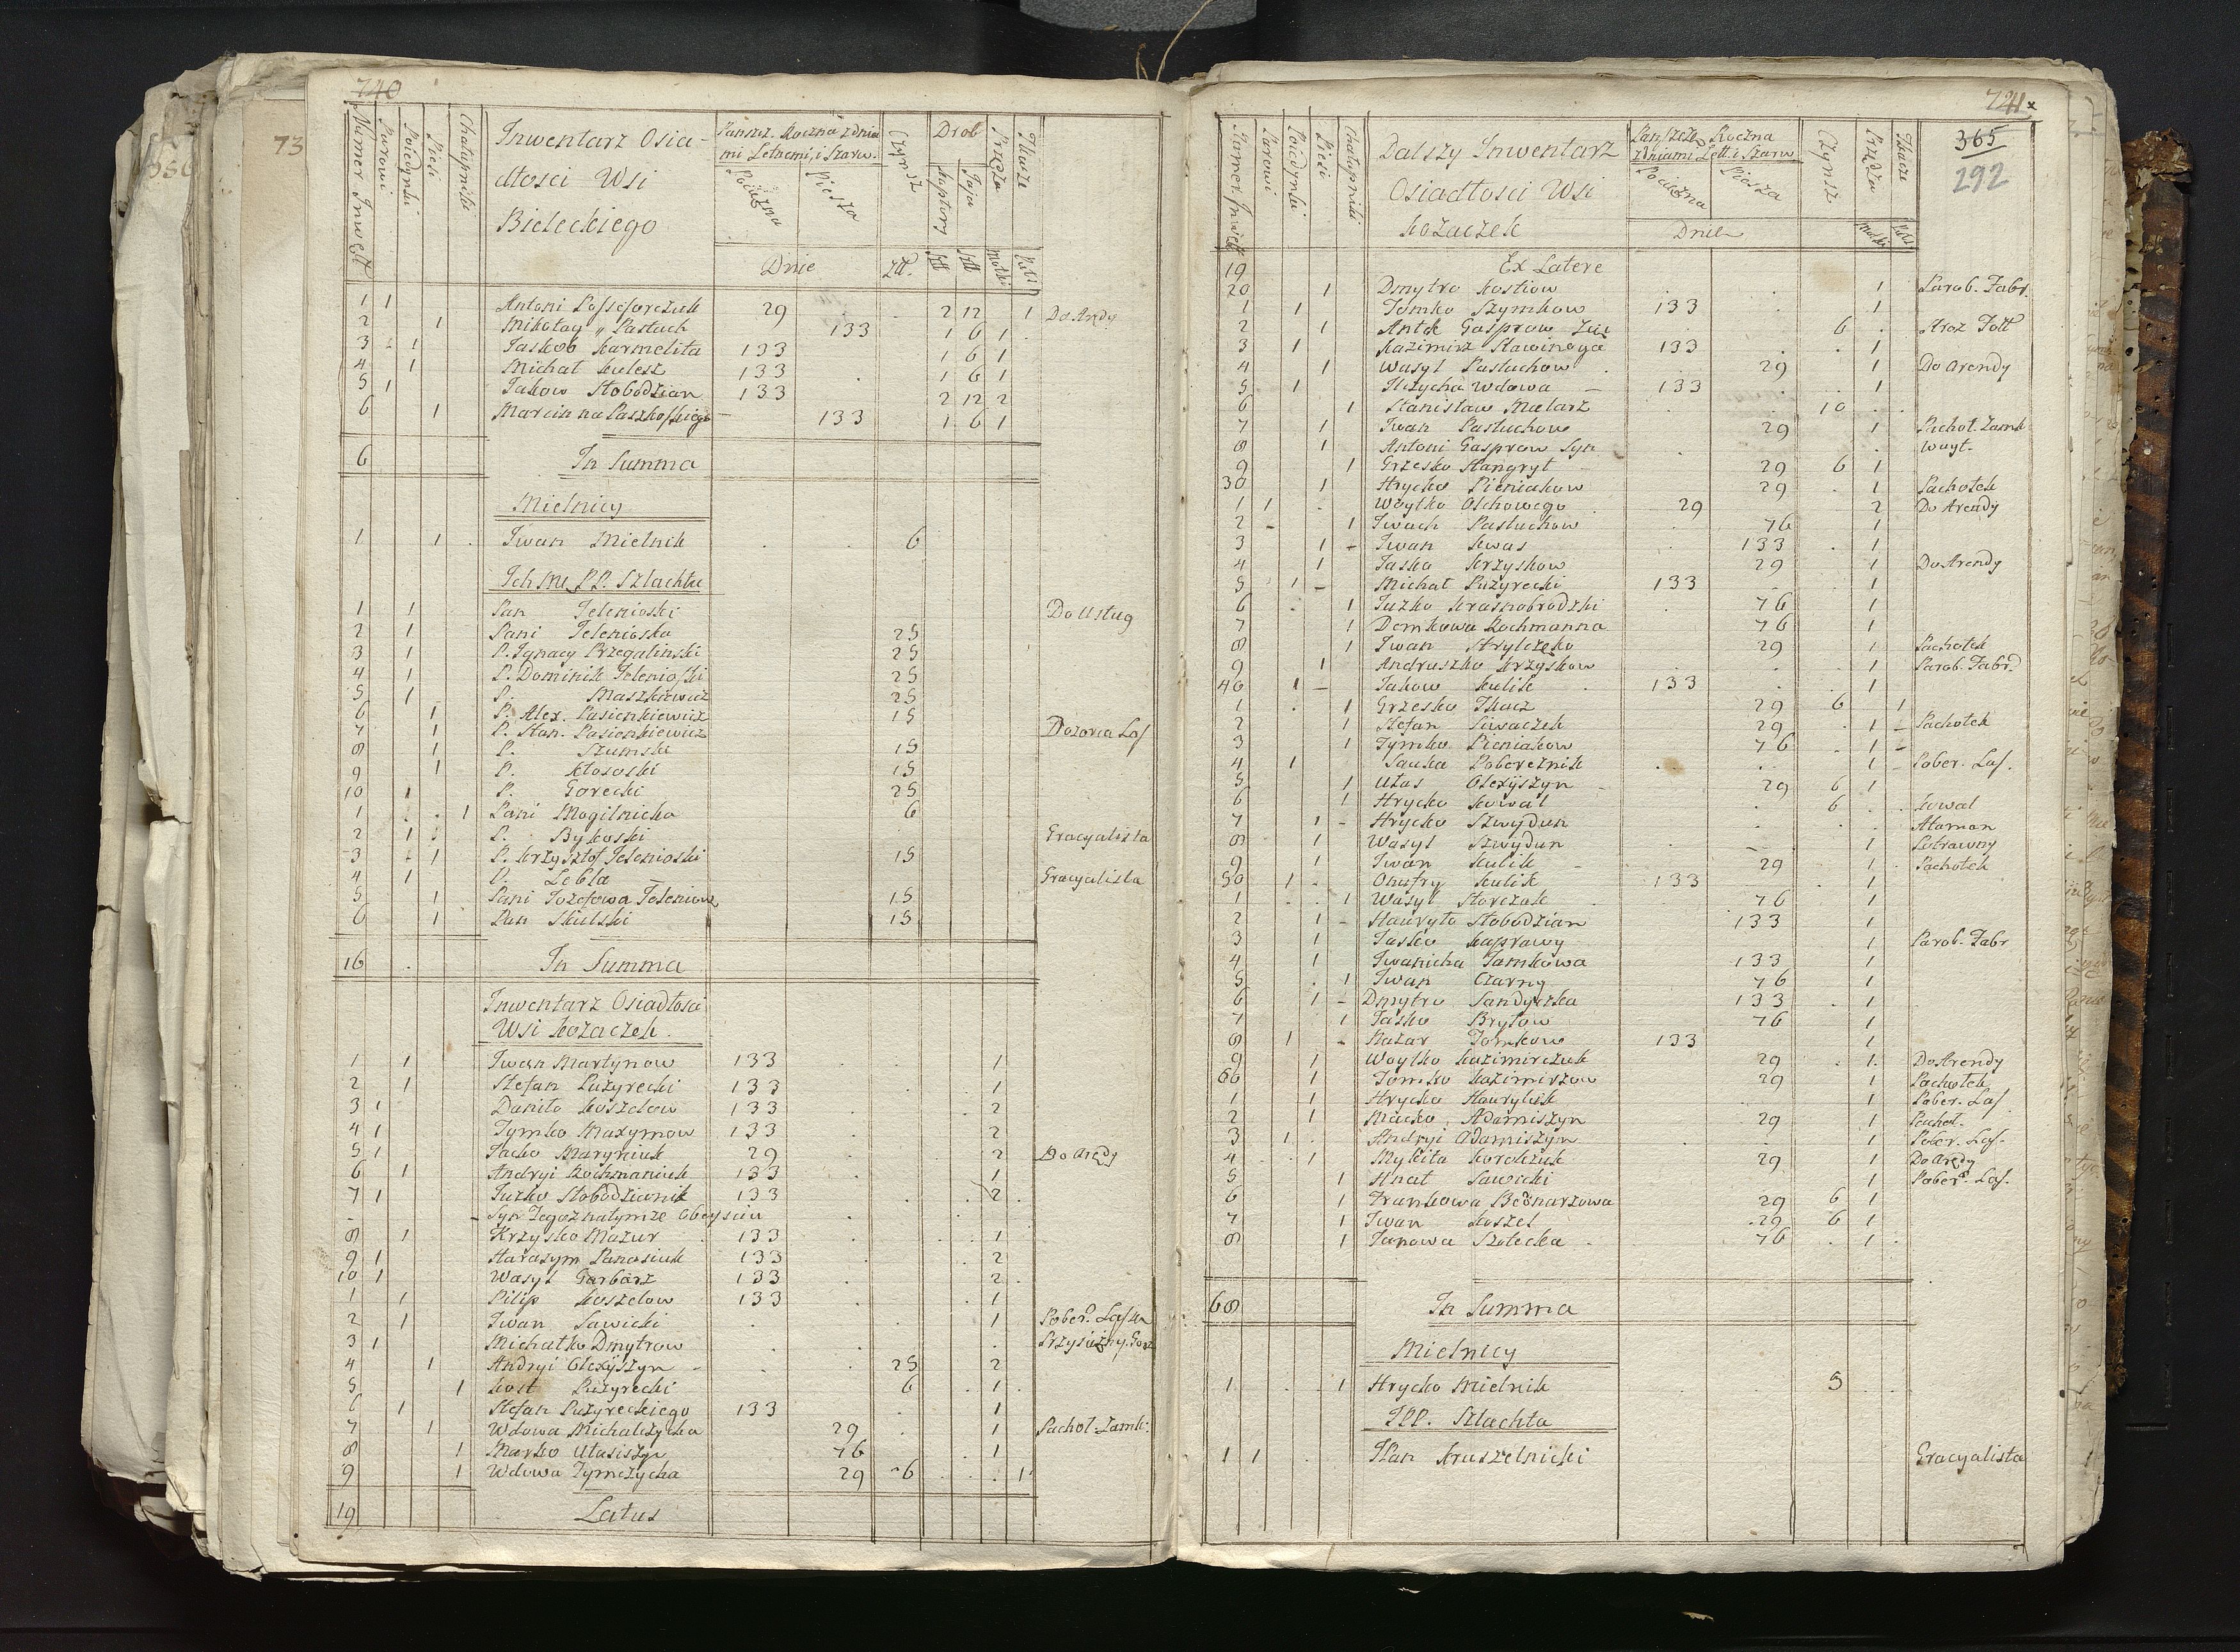 740
Numer Inwęt
Parowi
Poiedynki
Piesi
Chałupniki
Inwentarz Osia-
dłosci Wsi
Bieleckiego
Panszcz. Roczna z dnia
mi Letnemi, i Szarw.
Pociężna
Piesza
Dnie
Czynsz
Złł.
Drob
Kapłony
Jaja
Przęża
Motki
1 1 Antoni 29 2 12 1 Do Arędy
2 1 Mikołay Pastuch 133 1 6 1
3 1 Jaskob Karmelita 133 1 6 1
4 1 Michał Kulesz 133 1 6 1
5 1 Jakow Słobodzian 133 2 12 2
6 1 Marcin na Paszkoskiego 133 1 6 1
6 In Summa
Mielnicy
1 1 Iwan Mielnik 6
Ich PP. Szlachta
1 1 Pan Jelenioski Do Usług
2 1 Pani Jelenioska 25
3 1 P. Ignacy Przegalinski 25
4 1 P. Dominik Jelenioski 25
5 1 P. Maszkiewicz 25
6 1 P. Alex. Pasienkiewicz 15
7 1 P. Stan. Pasienkiewicz Dozorca Las
8 1 P. Szumski 15
9 1 P. Kłososki 15
10 1 P. Gorecki 25
1 1 Pani Mogilnicka 6
2 1 P. Bykoski Gracyalista
3 1 P. Krzysztof Jelenioski 15
4 1 P. Lebla Gracyalista
5 1 Pani Jozefowa Jeleniow 15
6 1 Pan Skulski 15
16 In Summa
Inwentarz Osiadłosci
Wsi Kozaczek
1 1 Iwan Martynow 133 1
2 1 Stefan Puzyrecki 133 1
3 1 Daniło Koszelow 133 2
4 1 Tymko Maxymow 133 2
5 1 Jacko Maryniuk 29 2 Do Arędy
6 1 Andryi Rochmaniuk 133 1
7 1 Juzko Słobodzianik 133 2
- Syn Jegoż na tymże Obeysciu
8 1 Krzysko Mazur 133 1
9 1 Harasym Panasiuk 133 2
10 1 Wasyl Garbarz 133 2
1 1 Pilip Koszelow 133 1
2 1 Iwan Sawicki 1 Pober.
3 1 Michałko Dmytrow Przysiężny
4 1 Andryi Olexyszyn 25 2
5 1 Kost Puzyrecki 6 1
6 1 Stefan Puzyreckiego 133 1
7 1 Wdowa Michalczycha 29 1 Pachoł. Zamk.
8 1 Marko Ułasiszyn 76 1
9 1 Wdowa Tymczycha 29 6 1
19 Latus
741
365
292
Numer Inwęt
Parowi
Poiedynki
Piesi
Chałupniki
Dalszy Inwentarz
Osiadłosci Wsi
Kozaczek
Panszczez. Roczna
z Dniami Lett. i Szarw
Pociężna
Piesza
Dnie
Czynsz
Przędza
Motki
19 Ex Latere
20 1 Dmytro Kostiow 1 Parob. Fabr.
1 1 Tomko Szymkow 133 1
2 1 Antek Gasprow Zięć 6 Stroz
3 1 Kazimirz 133 1
4 1 Wasyl Pastuchow 29 1 Do Arendy
5 1 Wdowa 133 1
6 1 Stanisław Malarz 10
7 1 Iwan Pastuchow 29 1 Pachoł. Zamk
8 1 Antoni Gasprow Syn Woyt.
9 1 Grzesko 29 6 1
30 1 Hrycko Pieniakow 29 1 Pachołek
1 1 Woytko Olchowego 29 2 Do Arendy
2 1 Iwach Pastuchow 76 1
3 1 Iwan Kwas 133 1
4 1 Jasko Krzyskow 29 1 Do Arendy
5 1 Michał Puzyrecki 133 1
6 1 Juzko Krasnobrodzki 76 1
7 1 Demkowa Rochmanna 76 1
8 1 Iwan 29 1 Pachołek
9 1 Andruszko Krzyskow 1 Parob. Fabr.
40 1 Jakow Kulik 133 1
1 1 Grzesko Tkacz 29 6 1
2 1 Stefan Siwaczek 29 1 Pachołek
3 1 Tymko Pieniakow 76 1
4 1 Sawka Pobereznik 1 Pober. Las.
5 1 Ułas Olexyszyn 29 6 1
6 1 Hrycko Kowal 6 Kowal
7 1 Hrycko Szwydun Ataman
8 1 Wasyl Szwydun 1 Potrawny
9 1 Iwan Kulik 29 1 Pachołek
50 1 Onufry Kulik 133 1
1 1 Wasyl Storczak 76 1
2 1 Hawryło Słobodzian 133 1
3 1 Jasko Kaprawy 1 Parob. Fabr
4 1 Iwanicha Jamkowa 133 1
5 1 Iwan Czarny 76 1
6 1 Dmytro Sandyczka 133 1
7 1 Jasko Bryłow 76 1
8 1 Nazar Tomkow 133 1
9 1 Woytko Kazimirczuk 29 1 Do Arendy
60 1 Tomko Kazimirzow 29 1 Pachołek
1 1 Hrycko Hawryluk 1 Pober. Las
2 1 Macko Adamiszyn 29 1 Pachoł.
3 1 Andryi Adamiszyn 1 Pober. Las.
4 1 Mykita Korolczuk 29 1 Do Arędy
5 1 Hnat Sawicki 1 Pober. Las.
6 1 Frankowa Bednarzowa 29 6 1
7 1 Iwan Koszel 29 6 1
8 1 Janowa Szolecka 76 1
68 In Summa
Mielnicy
1 1 Hrycko Mielnik 5
IPP. Szlachta
1 1 Pan Kruszelnicki Gracyalista